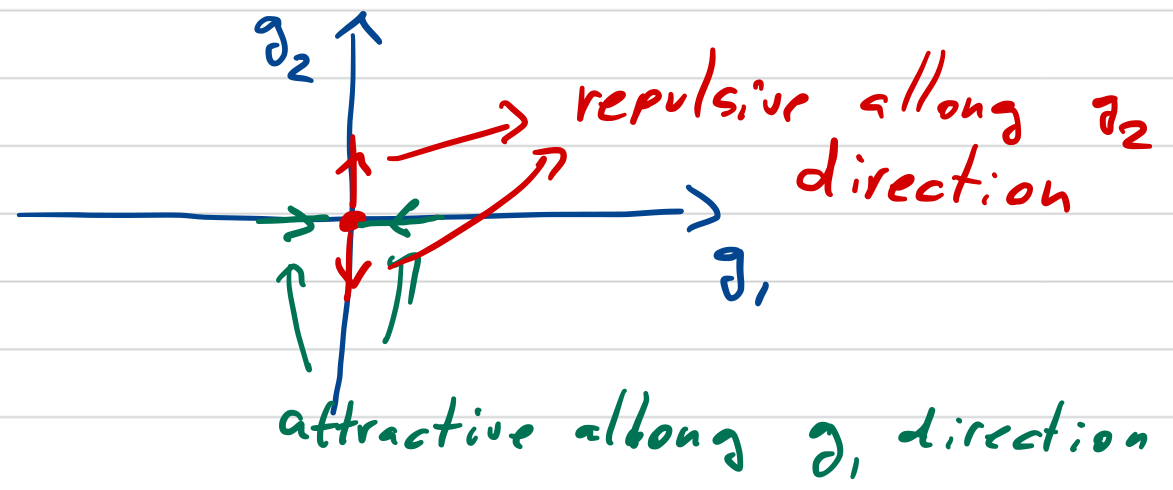 g₂
repulsive allong g₂
direction
g₁
attractive allong g₁ direction